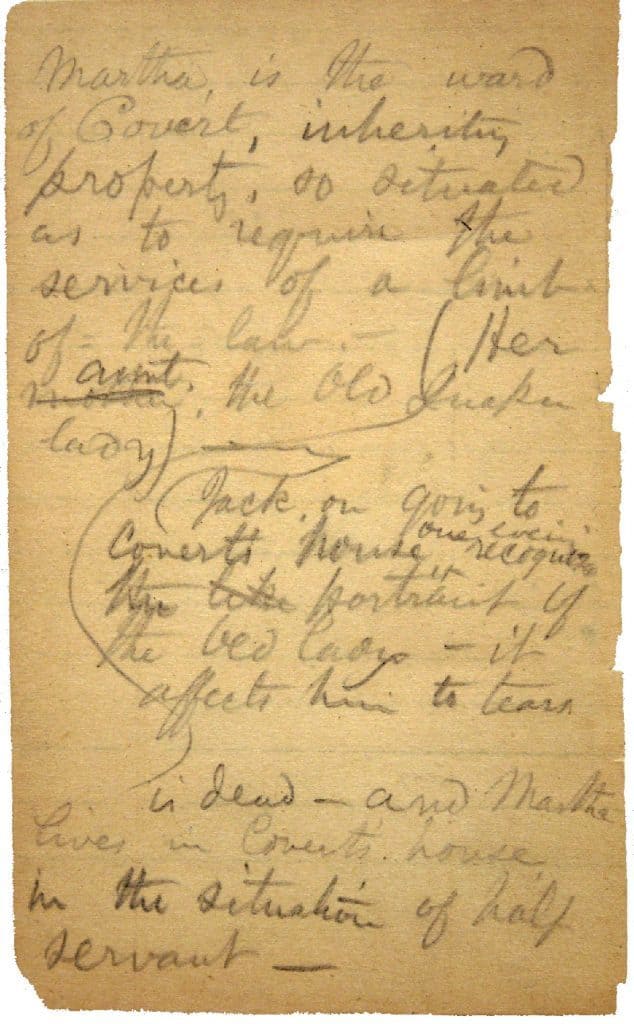 Martha, is the ward
of Covert, inheriting
property, so situated
as to require the
services of a limb
of the law. — (Her
aunt,
mother, the Old Quaker
lady)
Jack, on going to
Covert's house one evening recognizes
the like portrait of
the Old lady — it
affects him to tears
is dead — and Martha
lives in Covert's house
in the situation of half
servant —